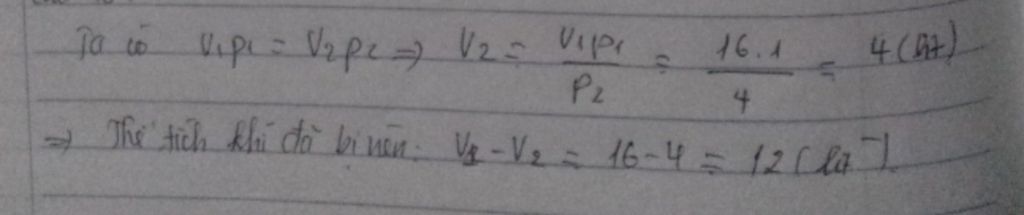 Ta có V₁p₁ = V₂p₂ => V₂ = V₁p₁ / P₂ = 16.1 / 4 = 4 (lít)
=> Thể tích khí đã bị nén: V₁ - V₂ = 16 - 4 = 12 (lít).